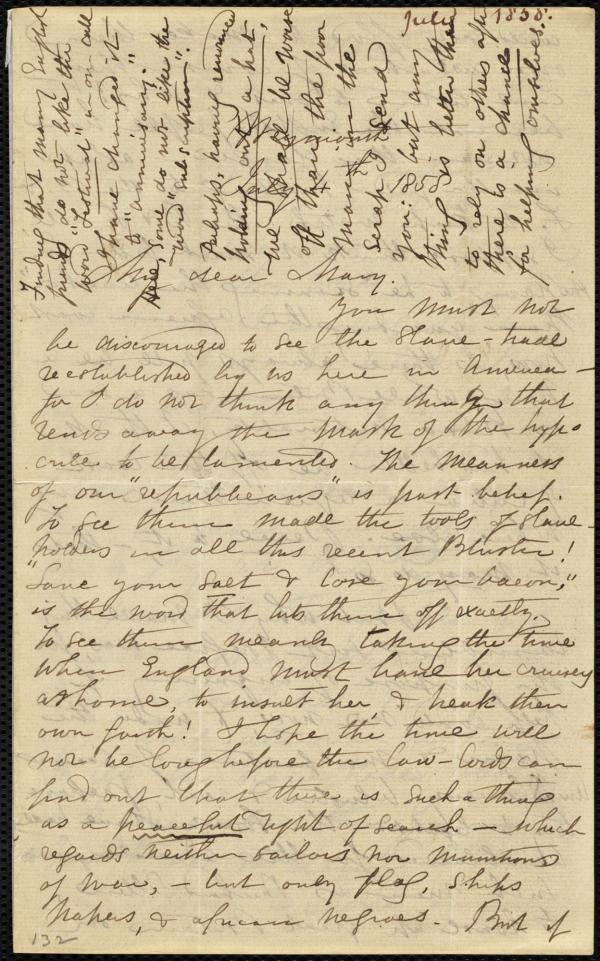 July 1858.
Weymouth
July 4th 1858
My dear Mary.
You must not
be discouraged to see the Slave-trade
reestablished by us here in America —
for I do not think any thing that
rends away the mask of the hypo-
crite to be lamented. The meanness
of our "republicans" is past belief.
To see them made the tools of Slave-
holders in all this recent Bluster!
"Save your Salt & lose your bacon,"
is the word that hits them off exactly.
To see them meanly taking the time
when England must have her cruisers
at home, to insult her, & break their
own faith! I hope the time will
not be long before the Law-lords can
find out that there is such a thing
as a peaceful right of search — which
regards neither sailors nor munitions
of war, — but only flag, ships
papers, & african negroes. But if
132
Finding that many English
friends do not like the
word "Festival" in our call
I have changed it
to "anniversary".
Here, some do not like the
word "subscription".
Perhaps, having renounced
holding out a hat,
we shall be worse
off than the poor
man in the
scrap I send
you: but any
thing is better than
to rely on others after
there is a chance
for helping ourselves.